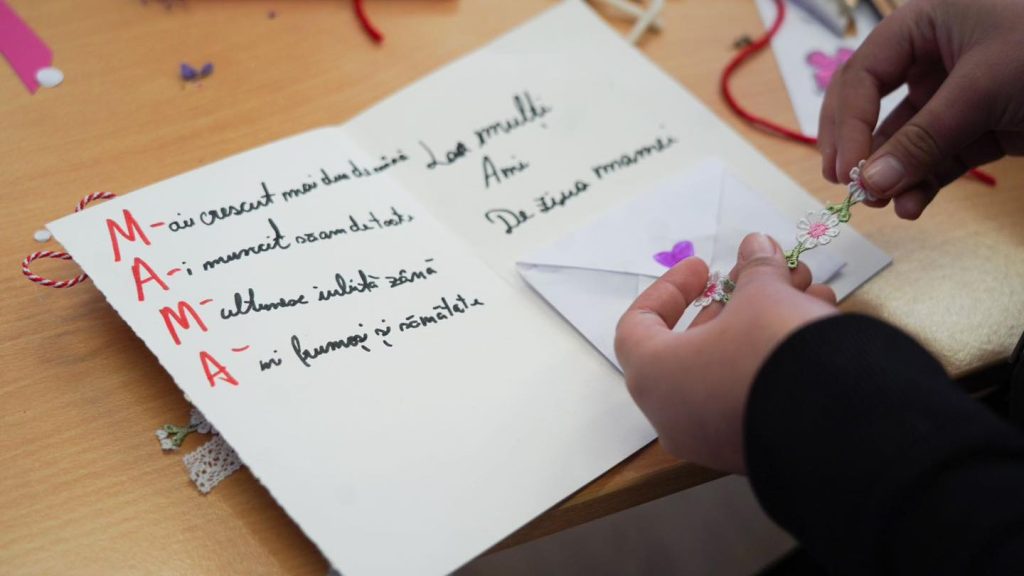 M-ai crescut mai dus de mână
A-i muncit să am de toate
M-ulțumesc iubită zână
A-ni frumoși și sămătate
La mulți
Ani
De ziua mamei